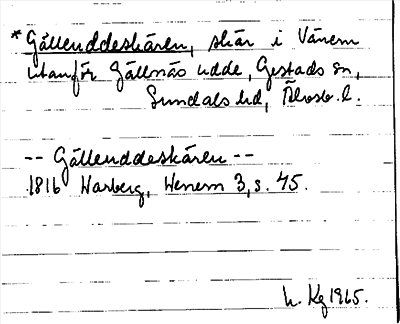 *Gällenddeskären, skär i Vänern
utanför Gällnäs udde, Gestads sn,
Sundals hd, Älvsb. l.
-- Gällenddeskären --
1816 Warberg, Wenern 3, s. 45.
h. Kg 1965.